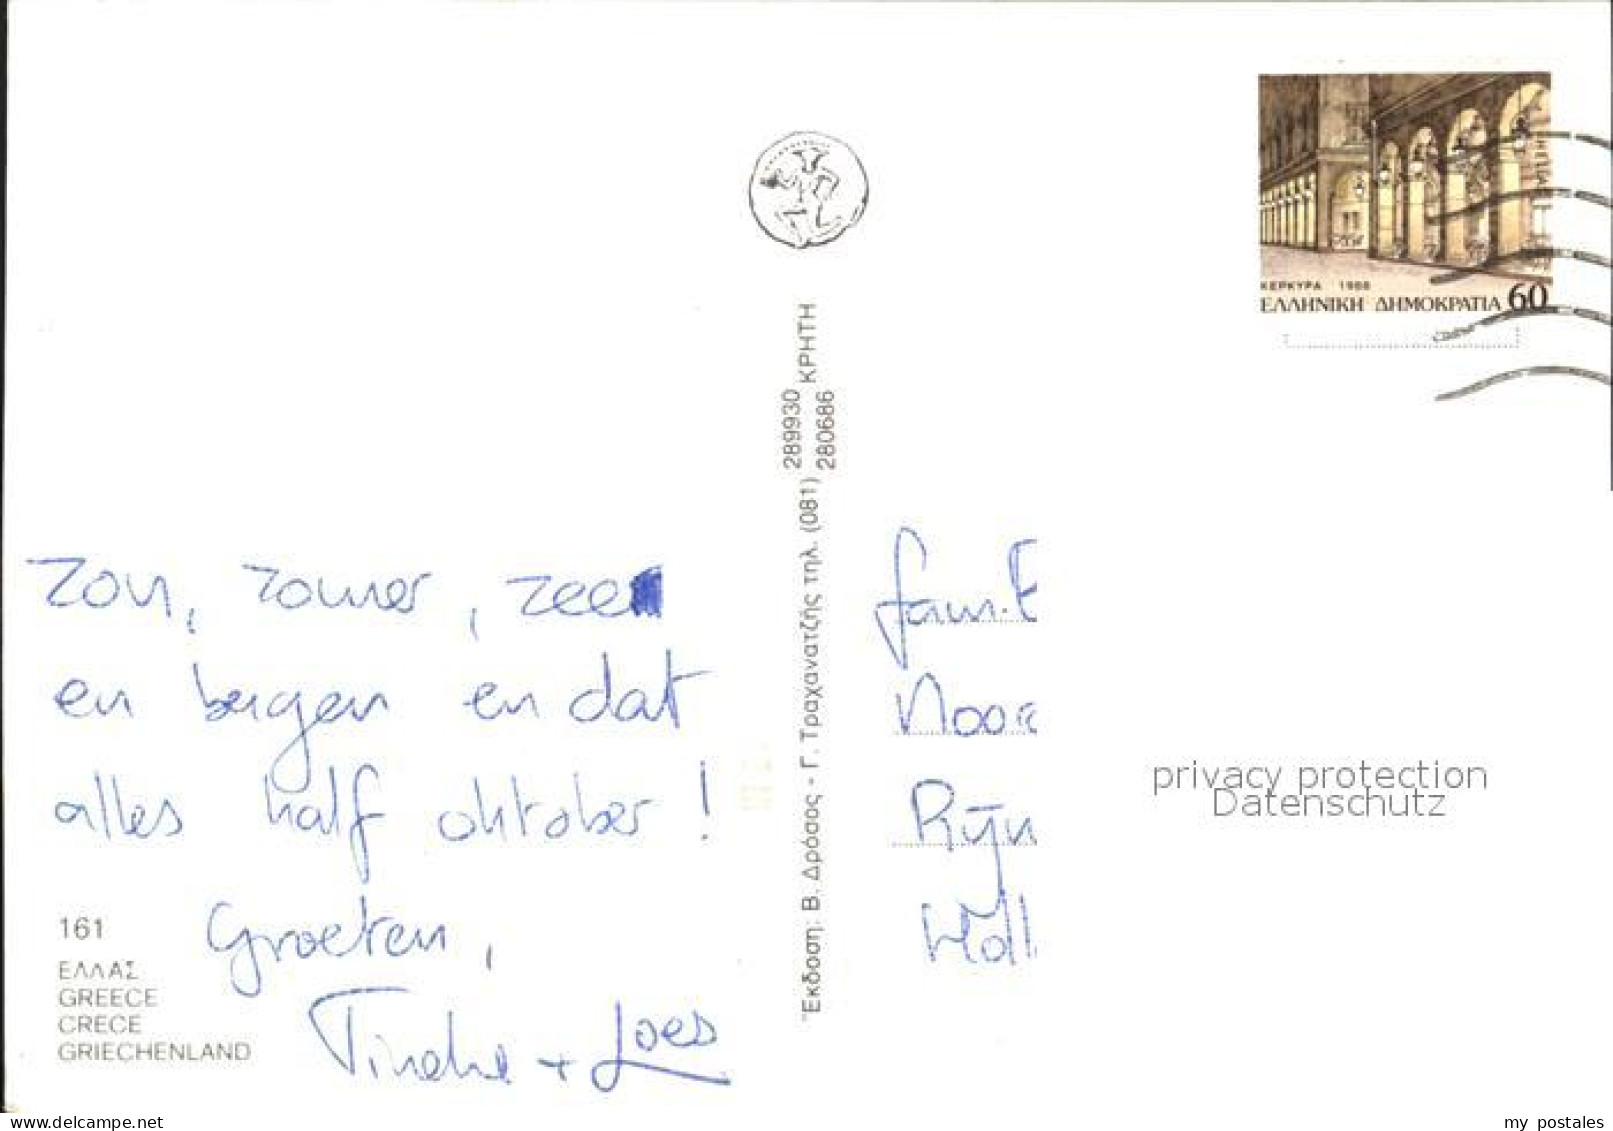 ΚΕΡΚΥΡΑ 1988
ΕΛΛΗΝΙΚΗ ΔΗΜΟΚΡΑΤΙΑ 60
Zon, zomer, zee
en bergen en dat
alles half oktober!
Groeten,
Tineke + Loes
161
ΕΛΛΑΣ
GREECE
CRECE
GRIECHENLAND
Έκδοση: Β. Δρόσος - Γ. Τραχανατζής τηλ. (081) 289930 280686 ΚΡΗΤΗ
fam. E
Noor
Rijn
Holl
privacy protection
Datenschutz
delcampe.net
my postales